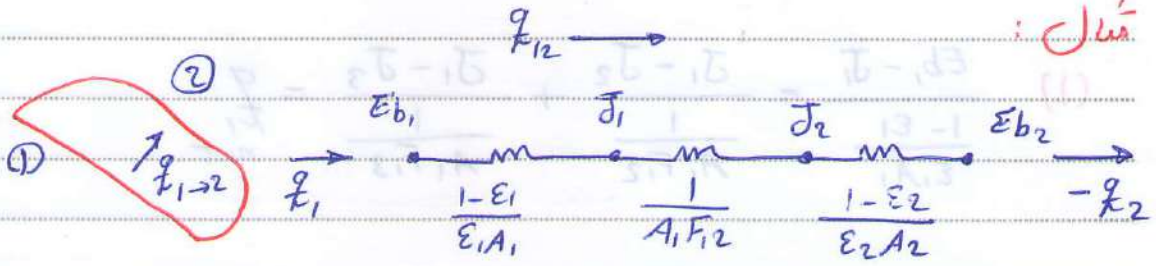 مثال :
q₁₂ ⟶
① ② q₁→₂
q₁ Eb₁ J₁ J₂ Eb₂ -q₂
(1-ε₁)/(ε₁A₁) 1/(A₁F₁₂) (1-ε₂)/(ε₂A₂)